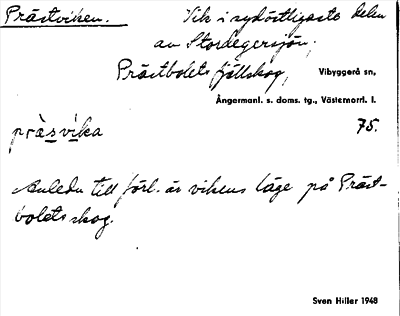 Prästviken. Vik i sydöstligaste delen
av Stordegersjön,
Prästbolets fjällskog, Vibyggerå sn,
Ångermanl. s. doms. tg., Västernorrl. l.
pràsvika 75.
Anledn till förl. är vikens läge på Präst-
bolets skog.
Sven Hiller 1948